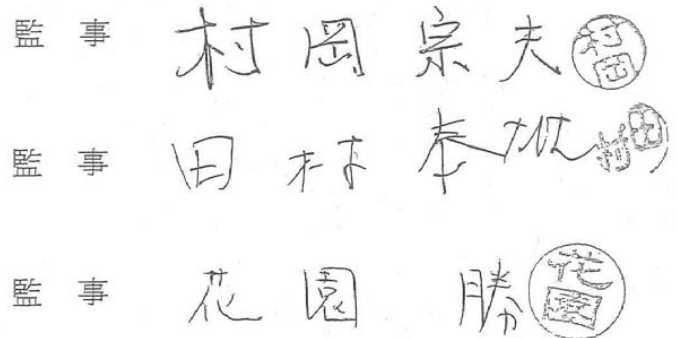 監事 村岡宗夫 村岡
監事 田村奉 田村
監事 花園 勝 花園